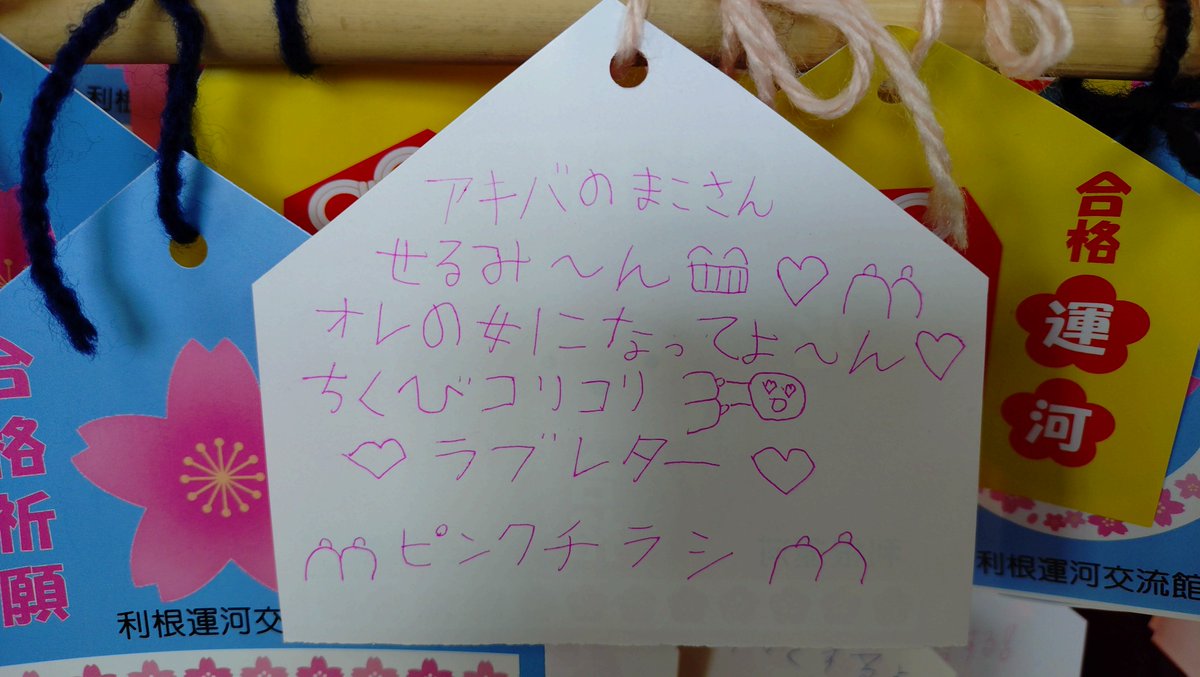 アキバのまこさん
せるみ〜ん♡
オレの女になってよ〜ん♡
ちくびコリコリ
♡ラブレター♡
ピンクチラシ
合格
運
河
利根運河交流館
合格祈願
利根運河交
利